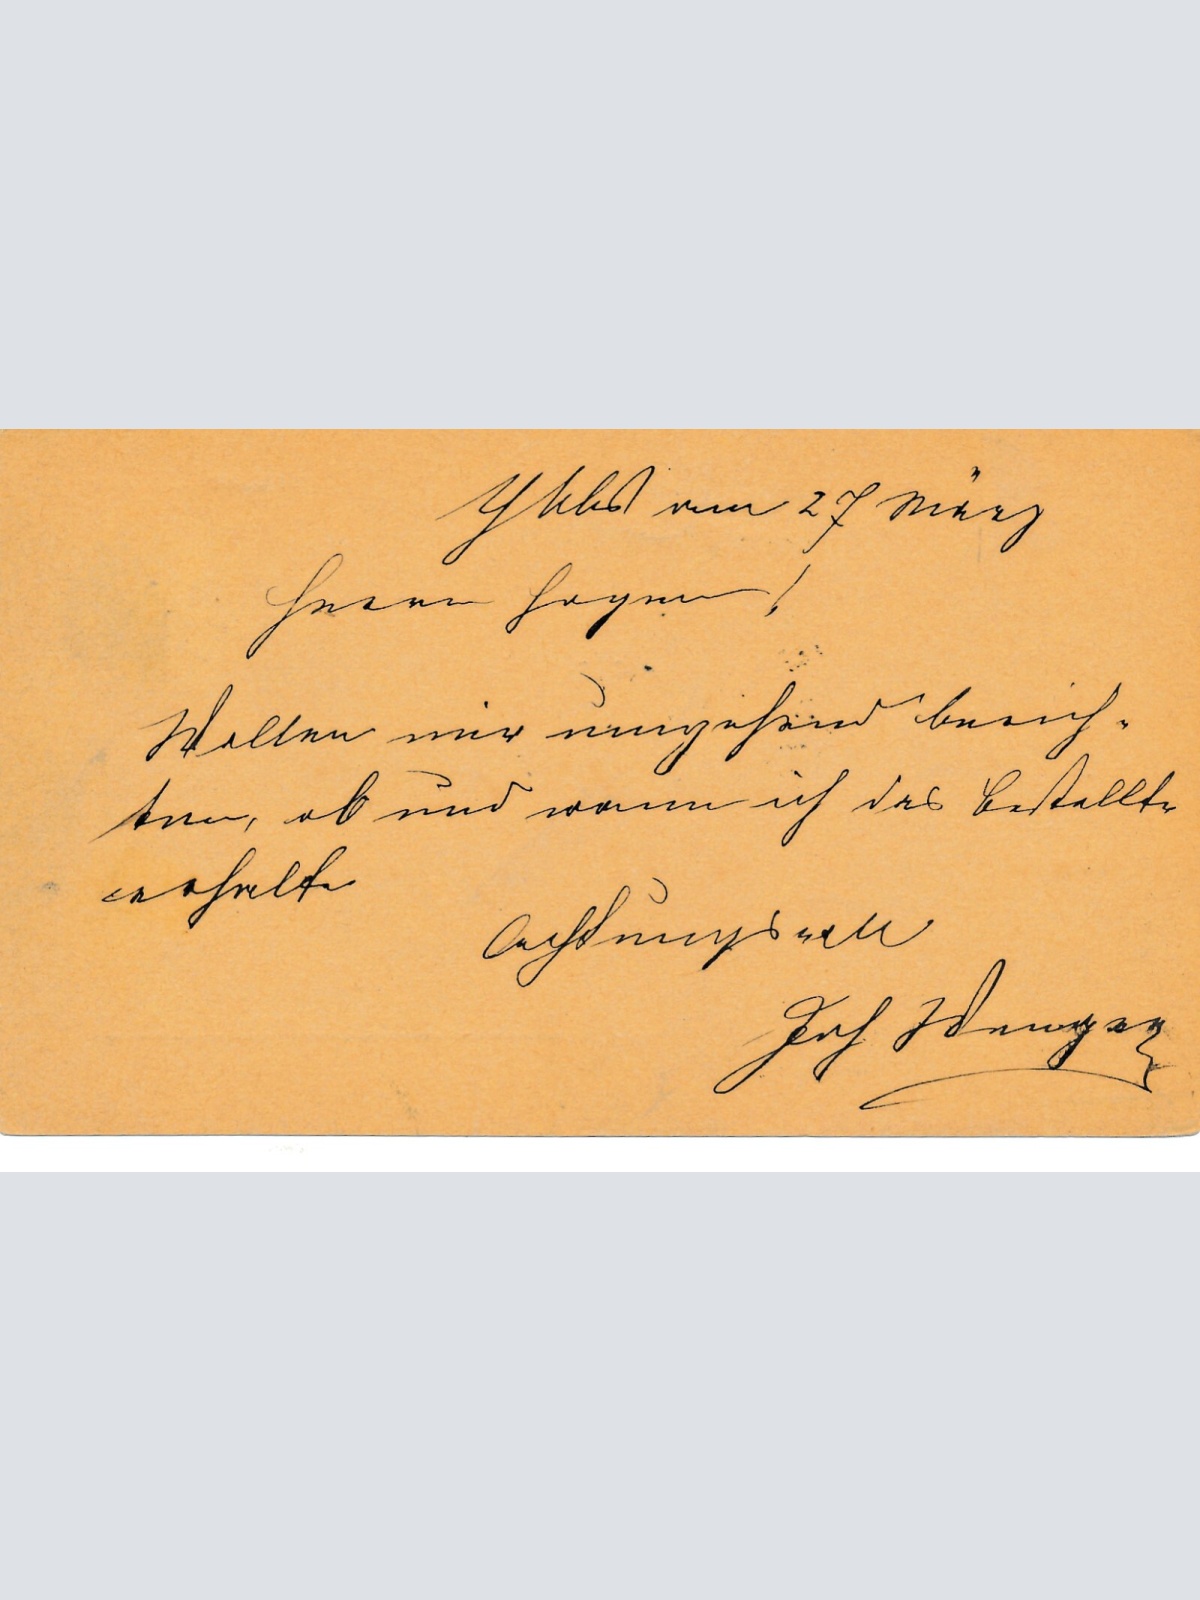 Ybbs am 27 März
Herrn Hagen!
Wollen mir umgehend berich-
ten, ob und wann ich das Bestellte
erhalte
Achtungsvoll
Joh Wenger